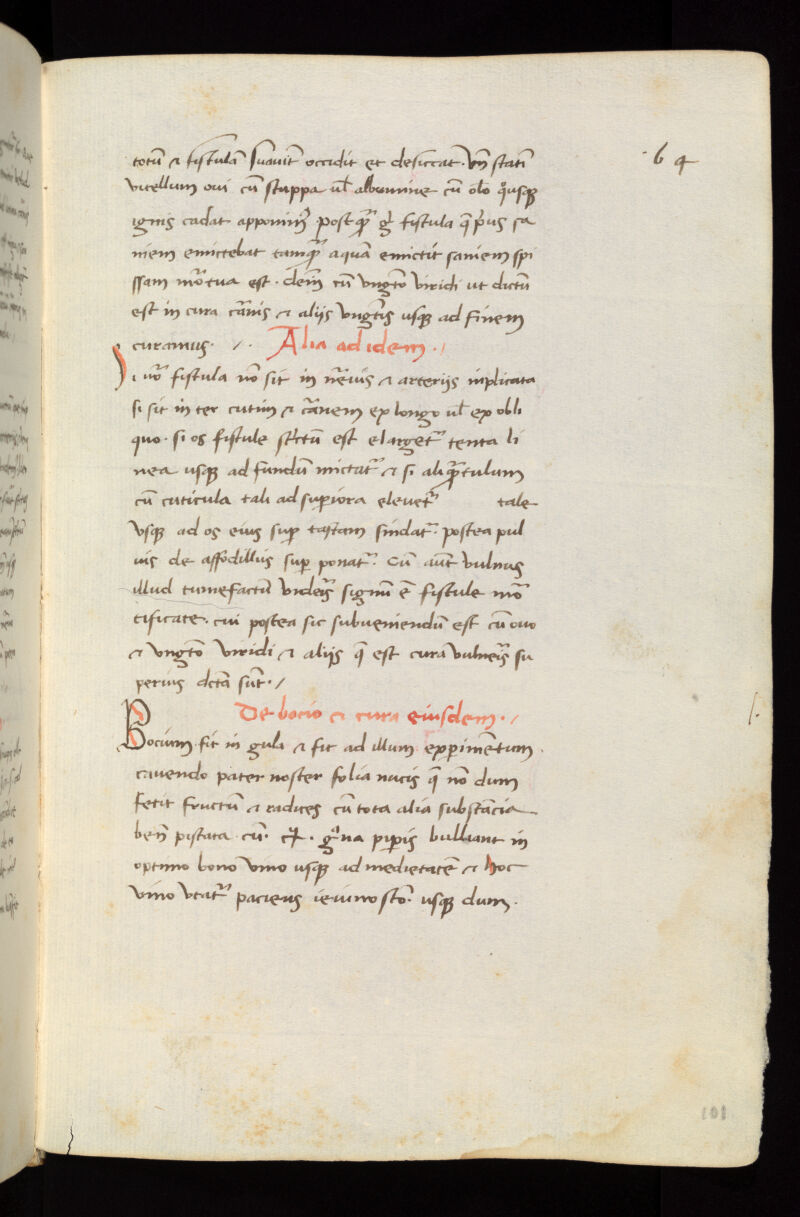 64
totū & fistulā suauiť occidit et desiccat. Vn̄ statī
vitellum oui cū stuppa ul̄ albumine cū olō qͥusqꝫ
ignis cadat apponim᷒ postqͣꝫ gͥ fistula q̄ pͥus sa
niem emictebat tamqͣꝫ aquā emictit saniem spi
ssam mortua est. dein̄ cū vngtō viridi ut dictū
est in cura cānis & aliis vngtīs usqꝫ ad finem
curamus. Alia ad idem.
Si uͦ fistula nō sit in neͬuis & arterijs inplicata
si sit in ter cutim & caͬnem ex longo ul̄ ex obli
quo. si os fistule stͥctū est elargetᷣ tenta li
nea usqꝫ ad fundū mictatᷣ & si aliqͣꝫtulum
cū cuticula tali ad superiora eleuetᷣ tale
vsqꝫ ad os eius suꝑ tastam sindatᷣ. postea pul
uis de affodillus suꝑ ponatᷣ. Cū aūt vulnus
illud tumefactū videᷣis signū ē fistule moͬ
tificate. cui postea sic subueniendū est cū ouo
& vngtō viridi & alijs q̄ est cura vulneͬis su
perius dc̄ta sūt.
De bocio & cura eiusdem.
Bocium fit in gula & fit ad illum experimētum.
cauendo pater noster folia nucis q̄ nō dum
fetit fructū & radices cū tota alia substācia
ben̄ pistata cū. gͣna piꝑis bulliant in
optimo bono vino usqꝫ ad medietatē & hoc
vino vtatᷣ paciens ieiuno stō. usqꝫ dum.
101